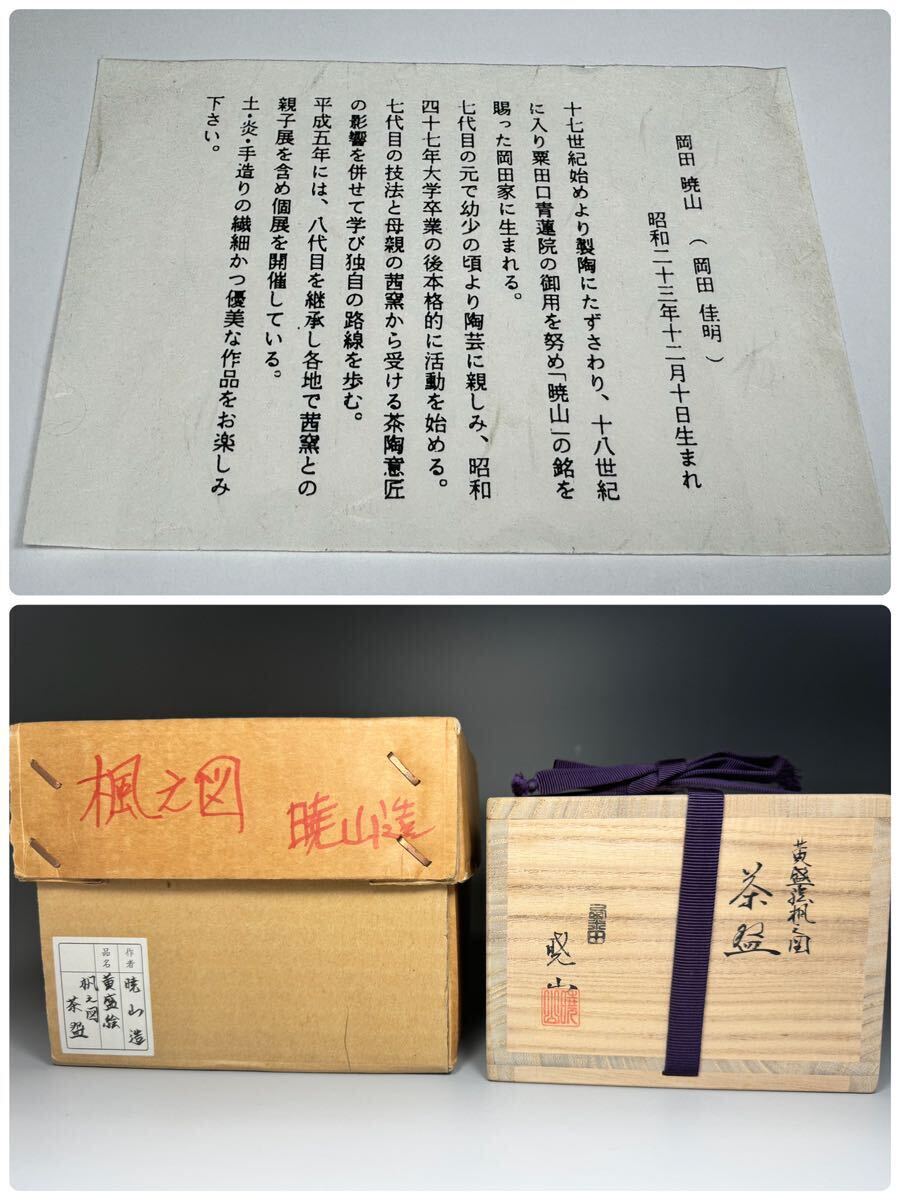 岡田 暁山 （ 岡田 佳明 ）
昭和二十三年十二月十日生まれ
十七世紀始めより製陶にたずさわり、十八世紀
に入り粟田口青蓮院の御用を努め「暁山」の銘を
賜った岡田家に生まれる。
七代目の元で幼少の頃より陶芸に親しみ、昭和
四十七年大学卒業の後本格的に活動を始める。
七代目の技法と母親の茜窯から受ける茶陶意匠
の影響を併せて学び独自の路線を歩む。
平成五年には、八代目を継承し各地で茜窯との
親子展を含め個展を開催している。
土・炎・手造りの繊細かつ優美な作品をお楽しみ
下さい。
楓之図
暁山造
作者 暁山造
品名 黄盛絵
楓之図
茶盌
黄盛絵楓之図
茶盌
暁山